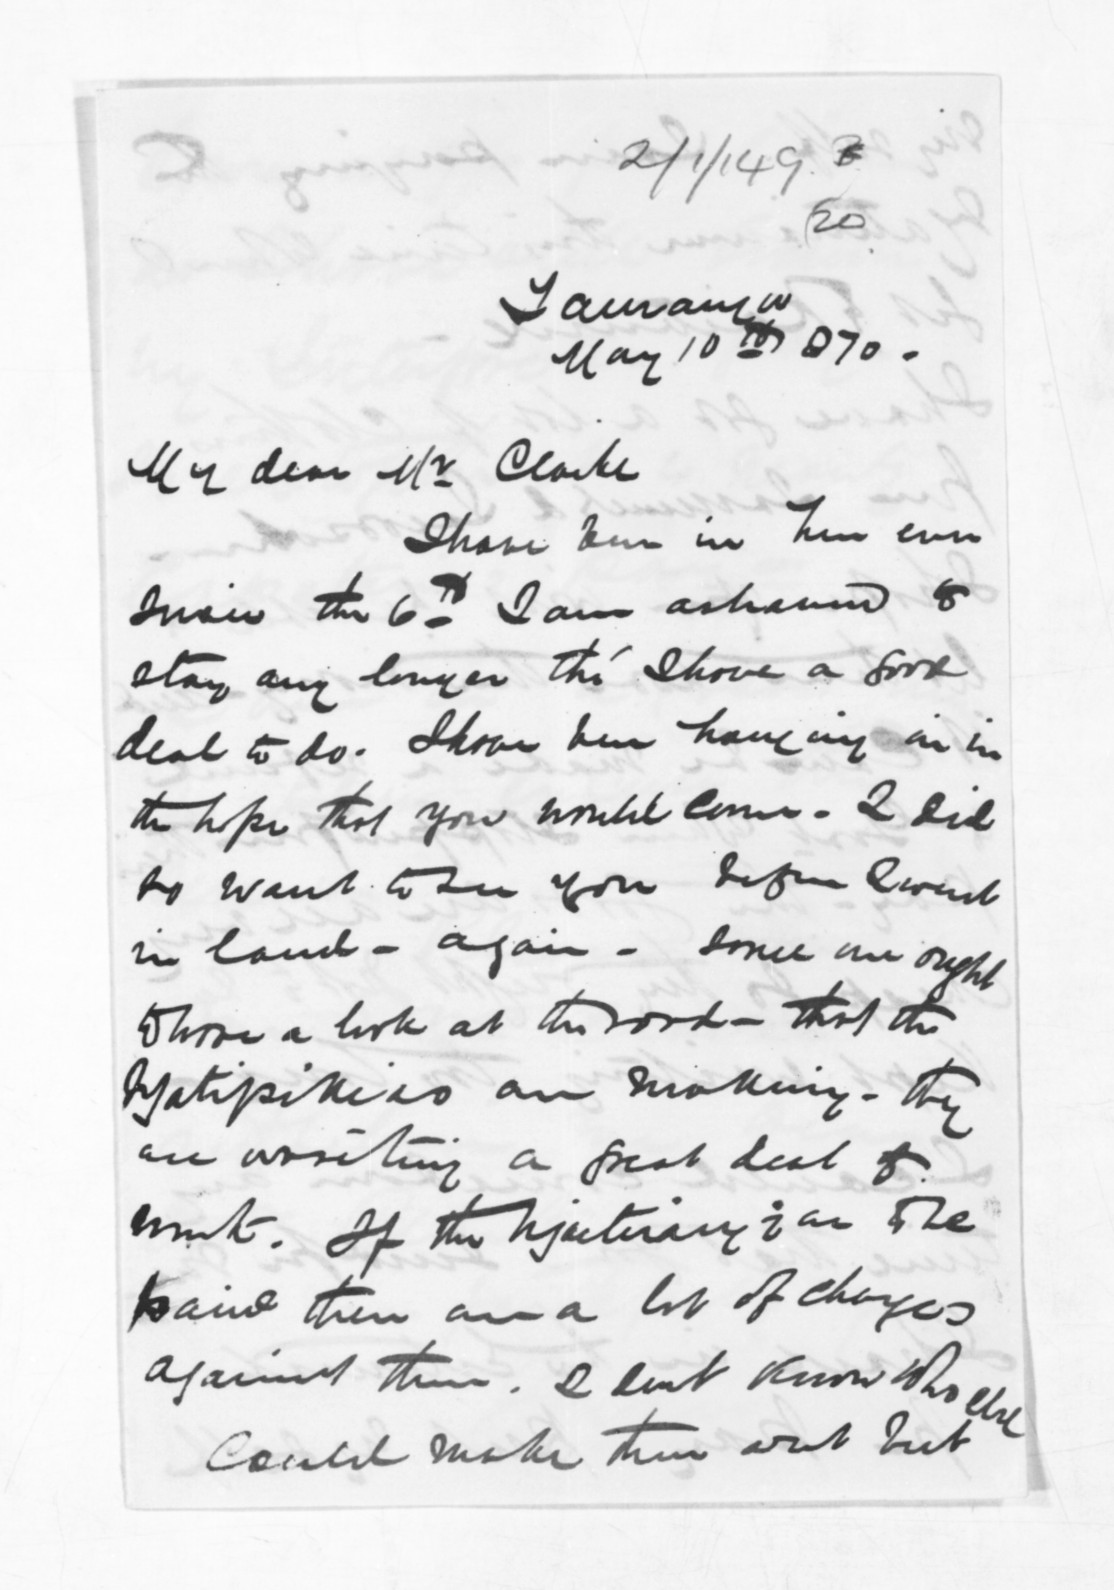 2/1/149. B
(20)
Tauranga
May 10th 1870.
My dear Mr Clarke
I have been in here ever
since the 6th I am ashamed to
stay any longer tho' I have a good
deal to do. I have been hanging on in
the hope that you would come. I did
so want to see you before I went
in land - again - some one ought
to have a look at the road - that the
Ngatipikiao are making - they
are wasting a great deal of
work. If the Ngaiterangi are to be
paid there are a lot of charges
against them. I dont know who else
could make them out but